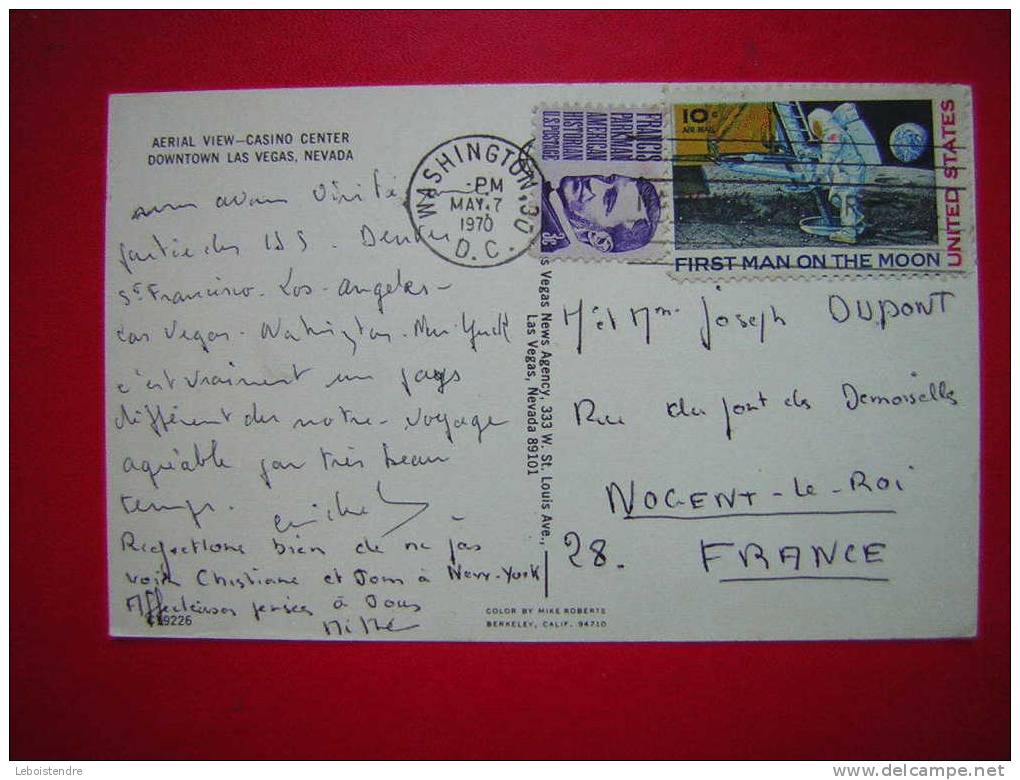 AERIAL VIEW—CASINO CENTER
DOWNTOWN LAS VEGAS, NEVADA
avons visité
partie des US. Denver
St Francisco - Los-Angeles -
Las Vegas - Washington - New-York
c'est vraiment un pays
différent du notre - Voyage
agréable par très beau
temps.
Regrettons bien de ne pas
voir Christiane et Tom à New-York
Affectueuses pensées à Tous
C19226
WASHINGTON, D.C.
PM
MAY 7
1970
FRANCIS
PARKMAN
AMERICAN
HISTORIAN
U.S. POSTAGE
3c
10c
AIR MAIL
UNITED STATES
FIRST MAN ON THE MOON
Las Vegas News Agency, 333 W. St. Louis Ave.,
Las Vegas, Nevada 89101
M et Mme Joseph DUPONT
Rue du pont des Demoiselles
NOGENT-le-ROI
28. FRANCE
COLOR BY MIKE ROBERTS
BERKELEY, CALIF. 94710
Leboistendre
delcampe.net